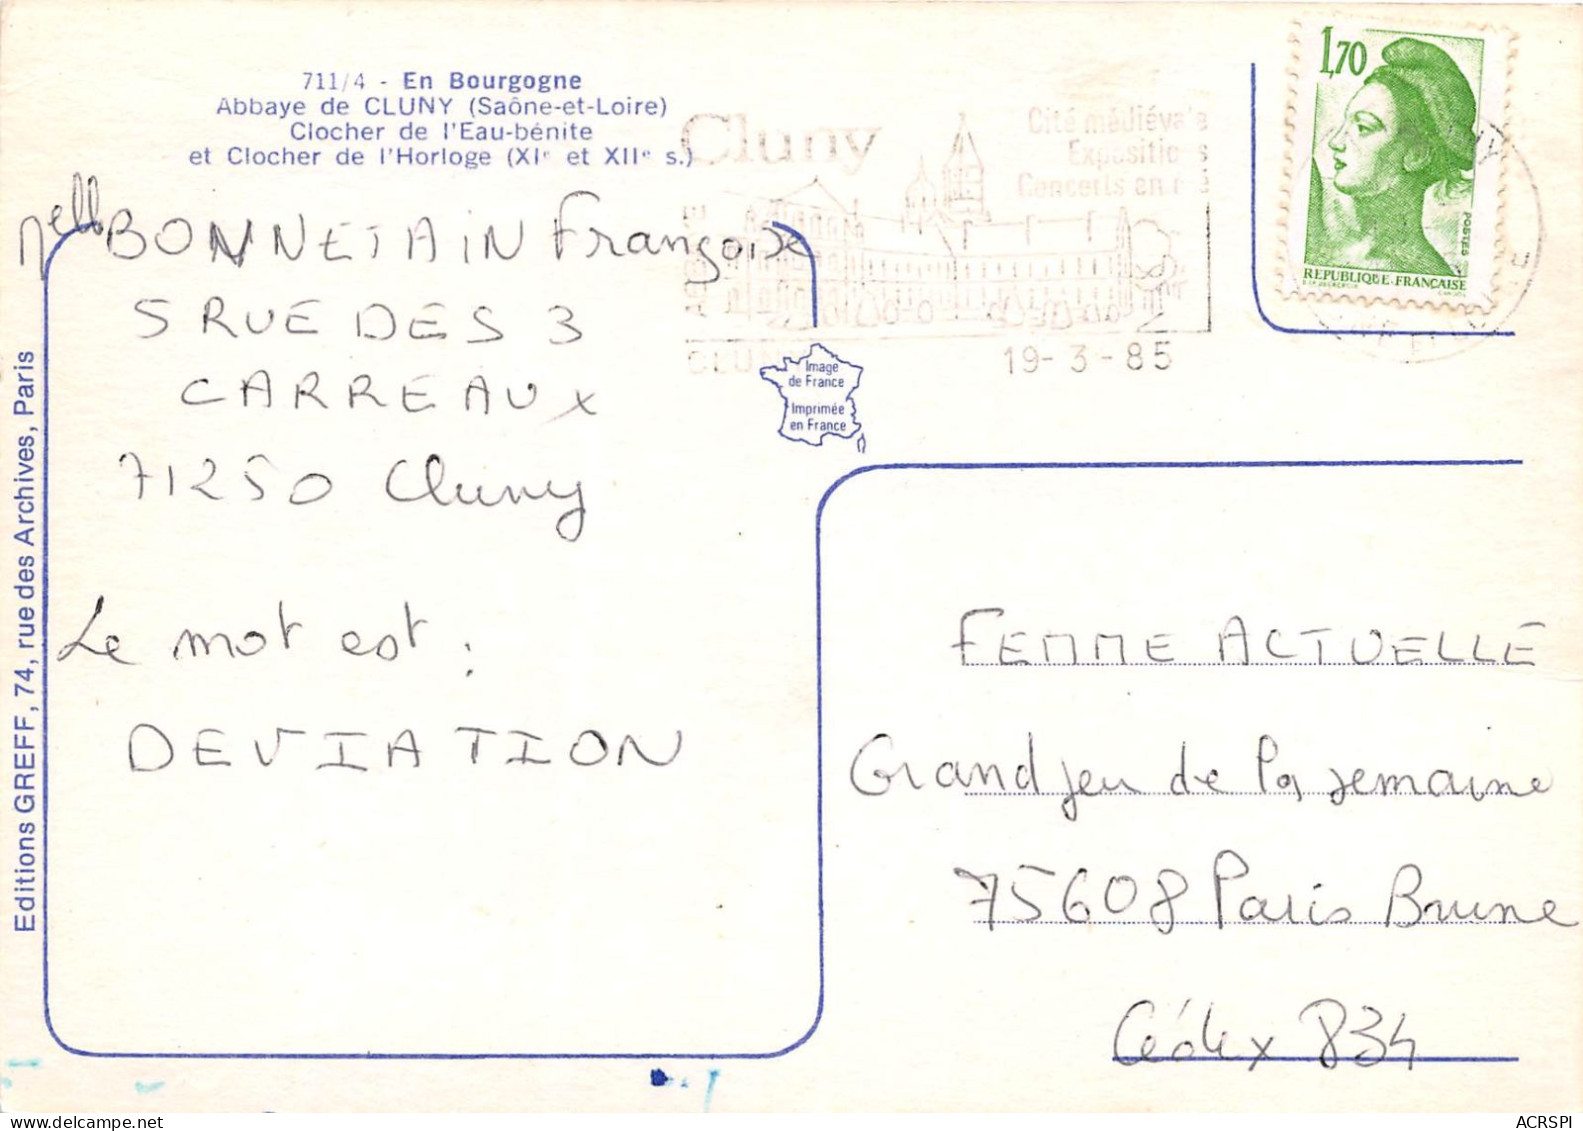 711/4 - En Bourgogne
Abbaye de CLUNY (Saône-et-Loire)
Clocher de l'Eau-bénite
et Clocher de l'Horloge (XIe et XIIe s.)
Mell BONNETAIN Françoise
5 RUE DES 3
CARREAUX
71250 Cluny
Le mot est :
DEVIATION
Editions GREFF, 74, rue des Archives, Paris
Cluny
Cité médiévale
Expositions
Concerts
CLUNY
19-3-85
1,70
POSTES
REPUBLIQUE FRANÇAISE
Image
de France
Imprimée
en France
FEMME ACTUELLE
Grand jeu de la semaine
75608 Paris Brune
Cédex 834
ACRSPI